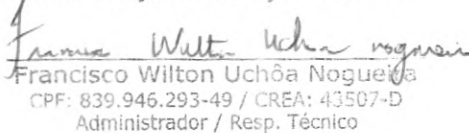 Francisco Wilton Uchôa Nogueira
Francisco Wilton Uchôa Nogueira
CPF: 839.946.293-49 / CREA: 43507-D
Administrador / Resp. Técnico